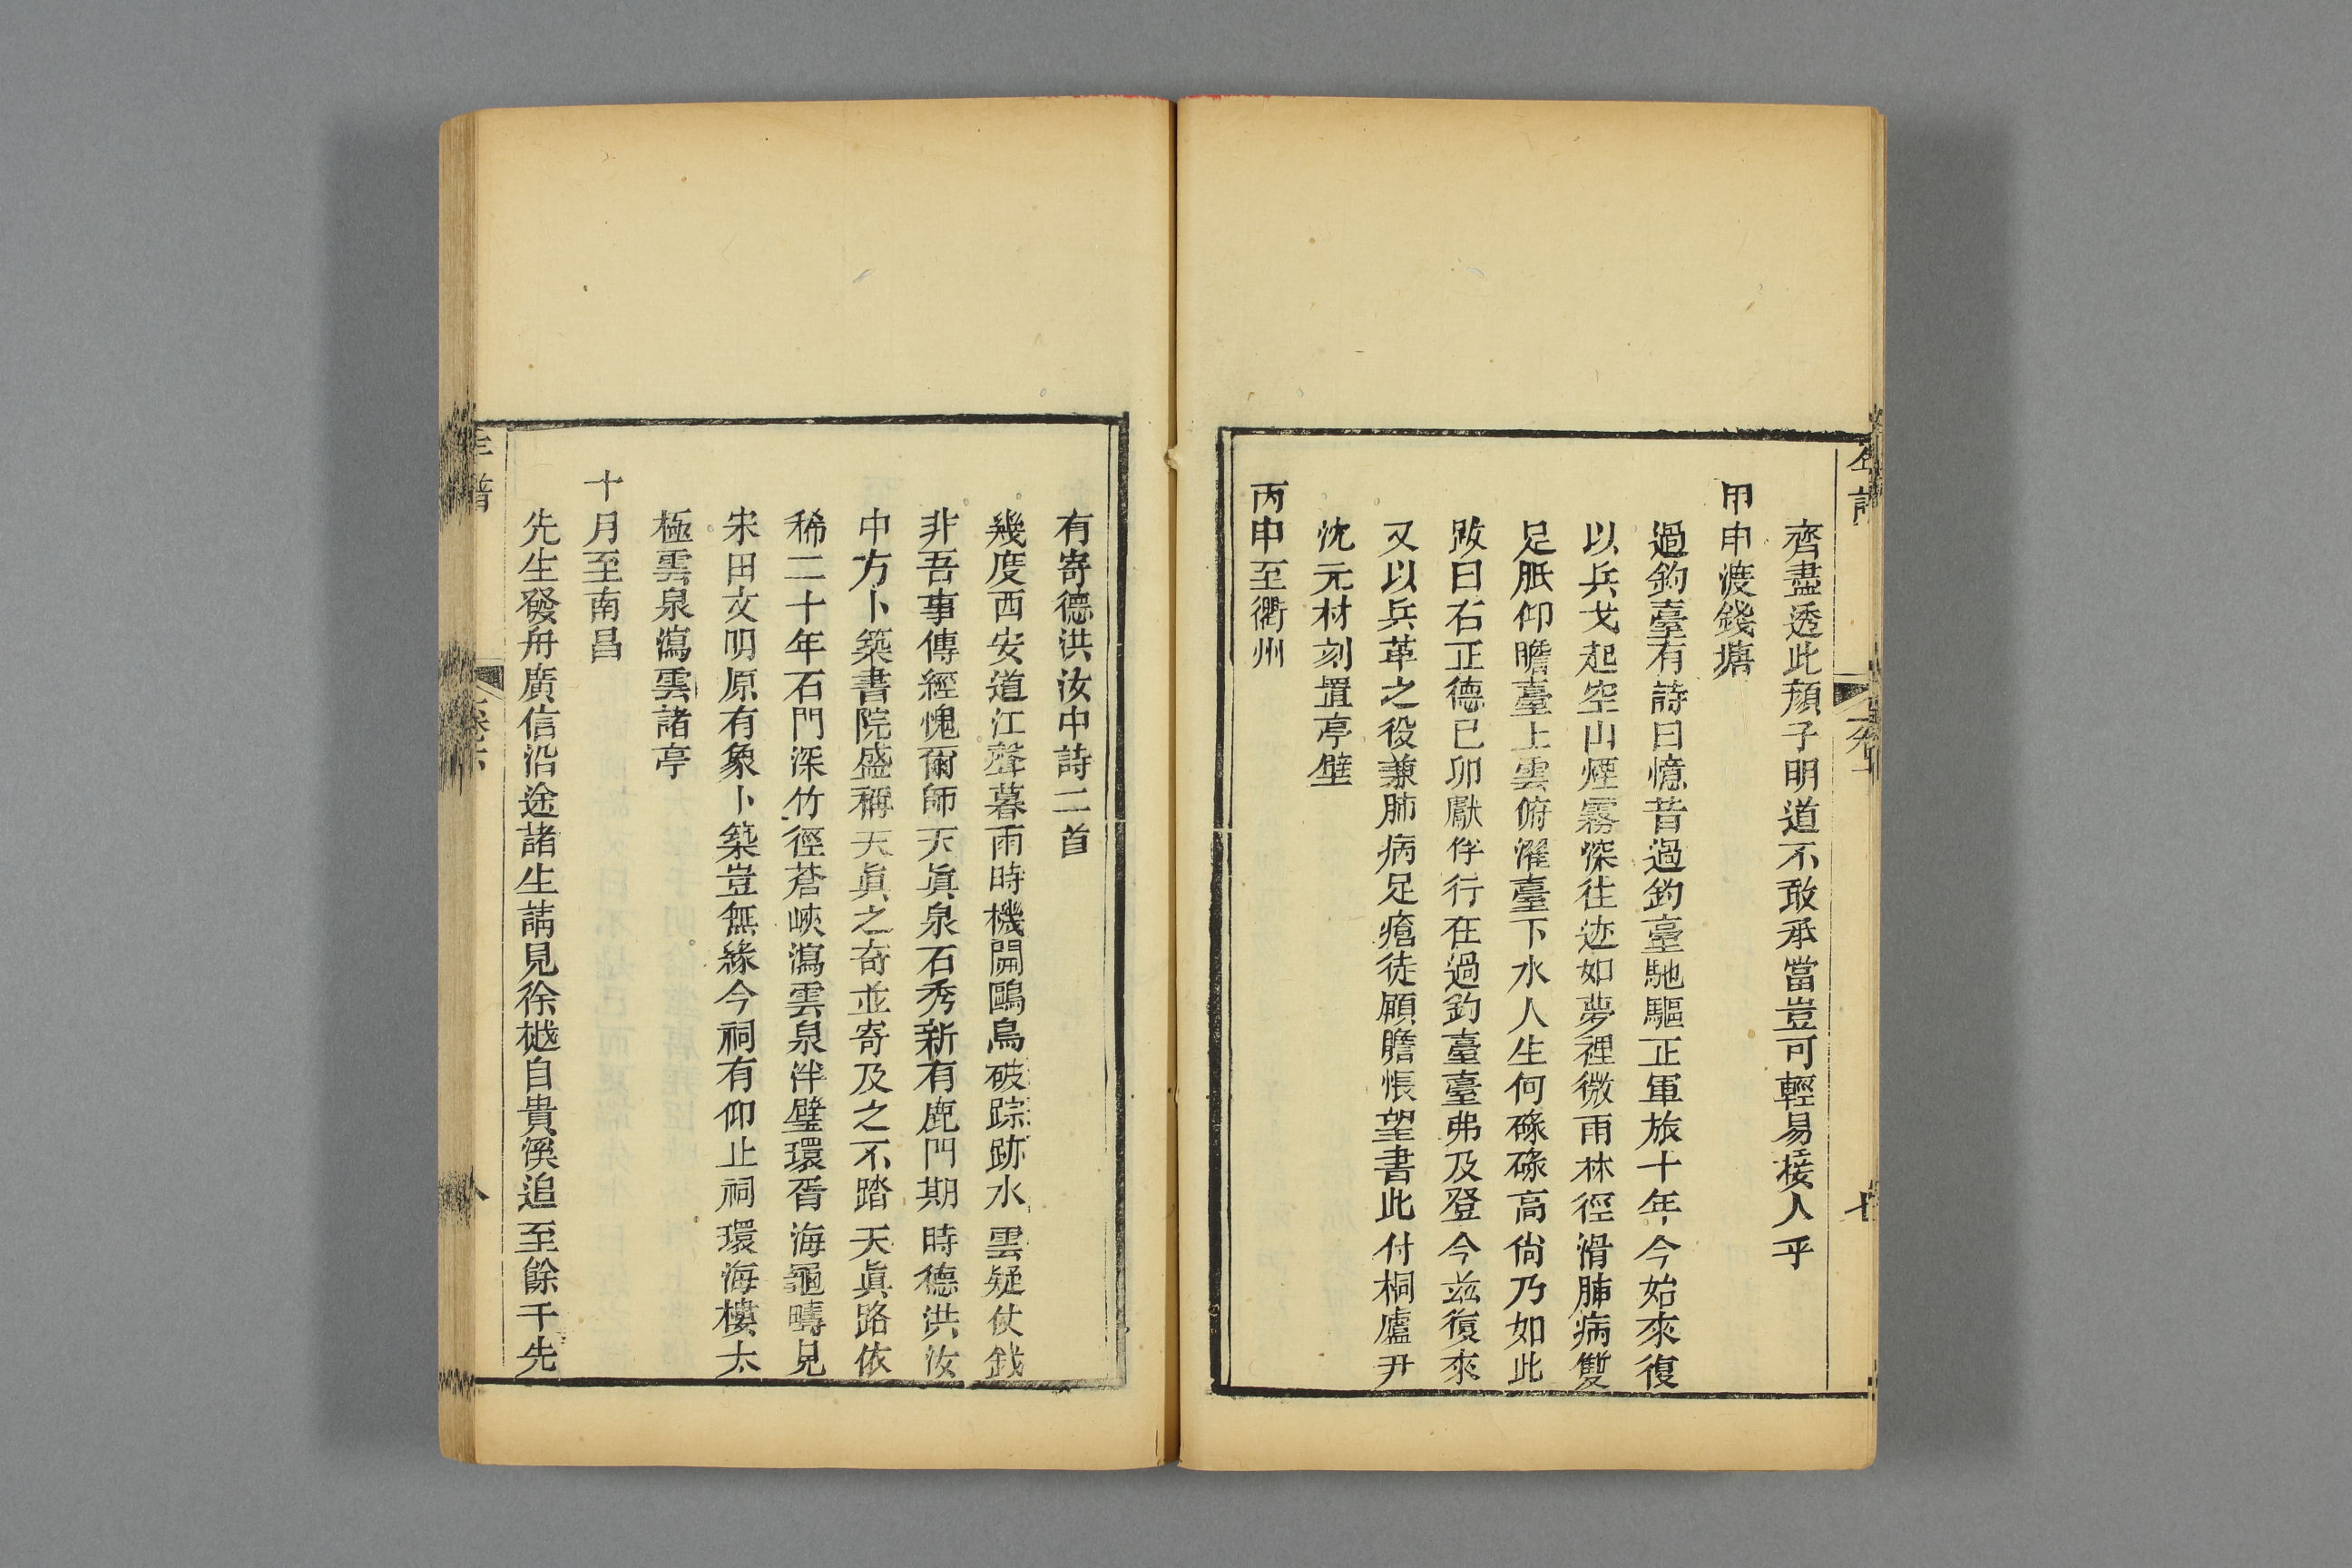 齊盡透此顏子明道不敢承當豈可輕易接人乎
甲申渡錢塘
過釣臺有詩曰憶昔過釣臺馳驅正軍旅十年今始來復
以兵戈起空山煙霧深往迹如夢裡微雨林徑滑肺病雙
足胝仰瞻臺上雲俯濯臺下水人生何碌碌高尚乃如此
跋曰右正德己卯獻俘行在過釣臺臺弗及登今兹復來
又以兵革之役兼肺病足瘡徒顧瞻悵望書此付桐廬尹
沈元材刻置亭壁
丙申至衢州
有寄德洪汝中詩二首
幾度西安道江聲暮雨時機關鷗鳥破踪跡水雲疑仗鉞
非吾事傳經愧爾師天眞泉石秀新有鹿門期時德洪汝
中方卜築書院盛稱天眞之奇並寄及之不踏天眞路依
稀二十年石門深竹徑蒼峽瀉雲泉泮璧環胥海龜疇見
宋田文明原有象卜築豈無緣今祠有仰止祠環海樓太
極雲泉瀉雲諸亭
十月至南昌
先生發舟廣信沿途諸生請見徐樾自貴溪追至餘干先
年譜
八